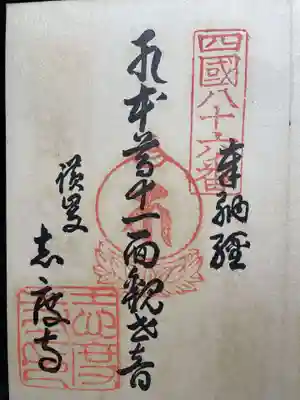 四國八十六番
奉納經
本尊十一面觀世音
讃岐
志度寺